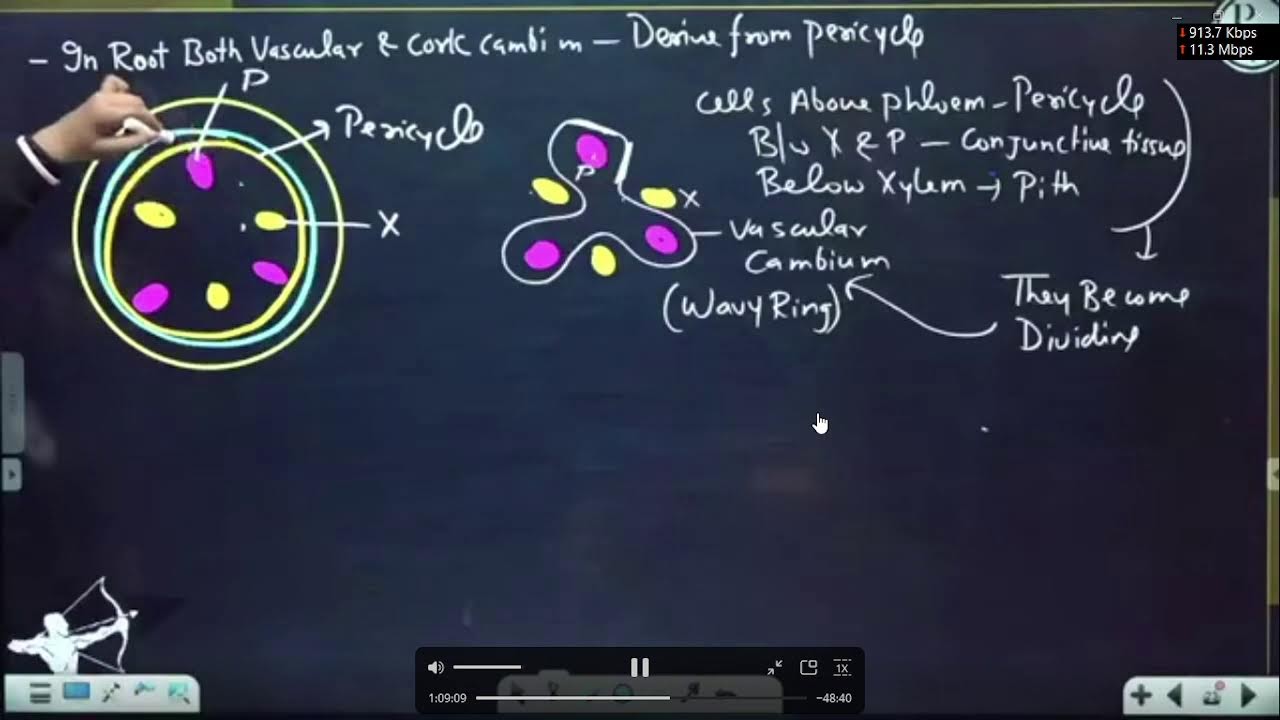 - In Root Both Vascular & Cork Cambium - Derive from pericycle
P
Pericycle
X
P
X
Cells Above phloem - Pericycle
B/w X & P - Conjunctive tissue
Below Xylem → Pith
Vascular
Cambium
(Wavy Ring)
They Become
Dividing
913.7 Kbps
11.3 Mbps
1X
1:09:09
-48:40